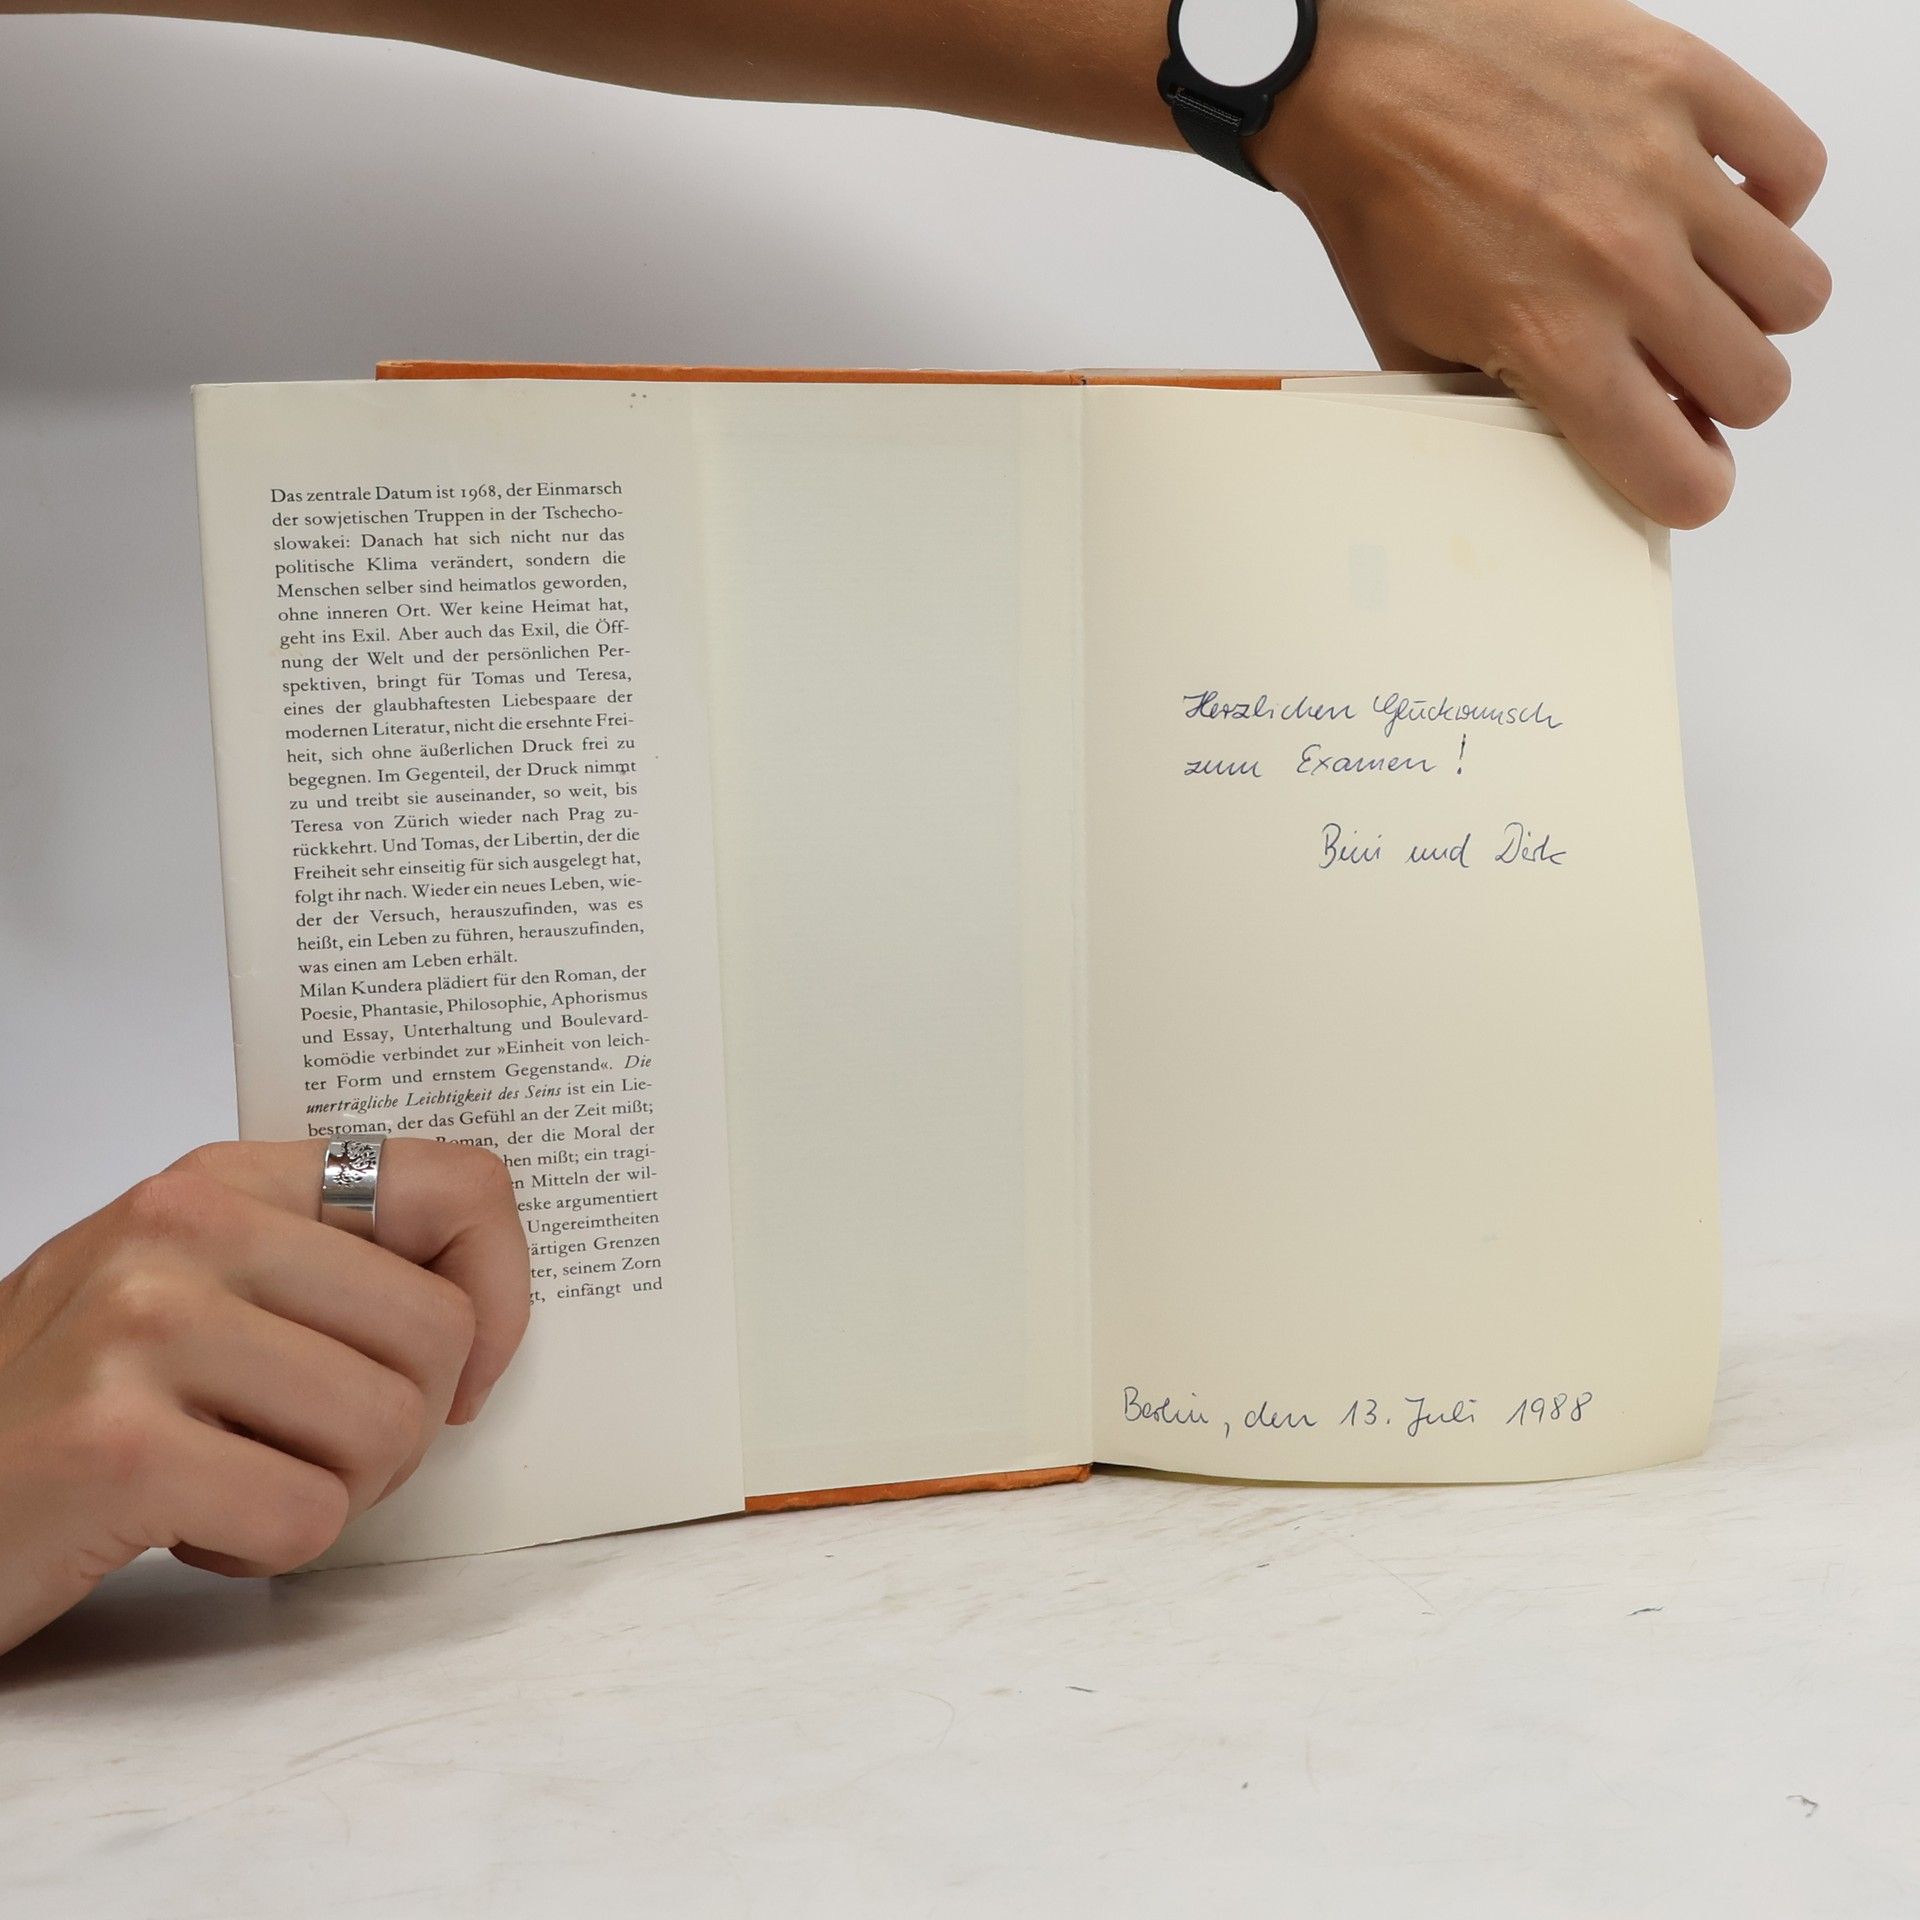 Das zentrale Datum ist 1968, der Einmarsch
der sowjetischen Truppen in der Tschecho-
slowakei: Danach hat sich nicht nur das
politische Klima verändert, sondern die
Menschen selber sind heimatlos geworden,
ohne inneren Ort. Wer keine Heimat hat,
geht ins Exil. Aber auch das Exil, die Öff-
nung der Welt und der persönlichen Per-
spektiven, bringt für Tomas und Teresa,
eines der glaubhaftesten Liebespaare der
modernen Literatur, nicht die ersehnte Frei-
heit, sich ohne äußerlichen Druck frei zu
begegnen. Im Gegenteil, der Druck nimmt
zu und treibt sie auseinander, so weit, bis
Teresa von Zürich wieder nach Prag zu-
rückkehrt. Und Tomas, der Libertin, der die
Freiheit sehr einseitig für sich ausgelegt hat,
folgt ihr nach. Wieder ein neues Leben, wie-
der der Versuch, herauszufinden, was es
heißt, ein Leben zu führen, herauszufinden,
was einen am Leben erhält.
Milan Kundera plädiert für den Roman, der
Poesie, Phantasie, Philosophie, Aphorismus
und Essay, Unterhaltung und Boulevard-
komödie verbindet zur »Einheit von leich-
ter Form und ernstem Gegenstand«. Die
unerträgliche Leichtigkeit des Seins ist ein Lie-
besroman, der das Gefühl an der Zeit mißt;
Roman, der die Moral der
hen mißt; ein tragi-
n Mitteln der wil-
eske argumentiert
Ungereimtheiten
ärtigen Grenzen
ter, seinem Zorn
gt, einfängt und
Herzlichen Glückwunsch
zum Examen!
und Dirk
Berlin, den 13. Juli 1988